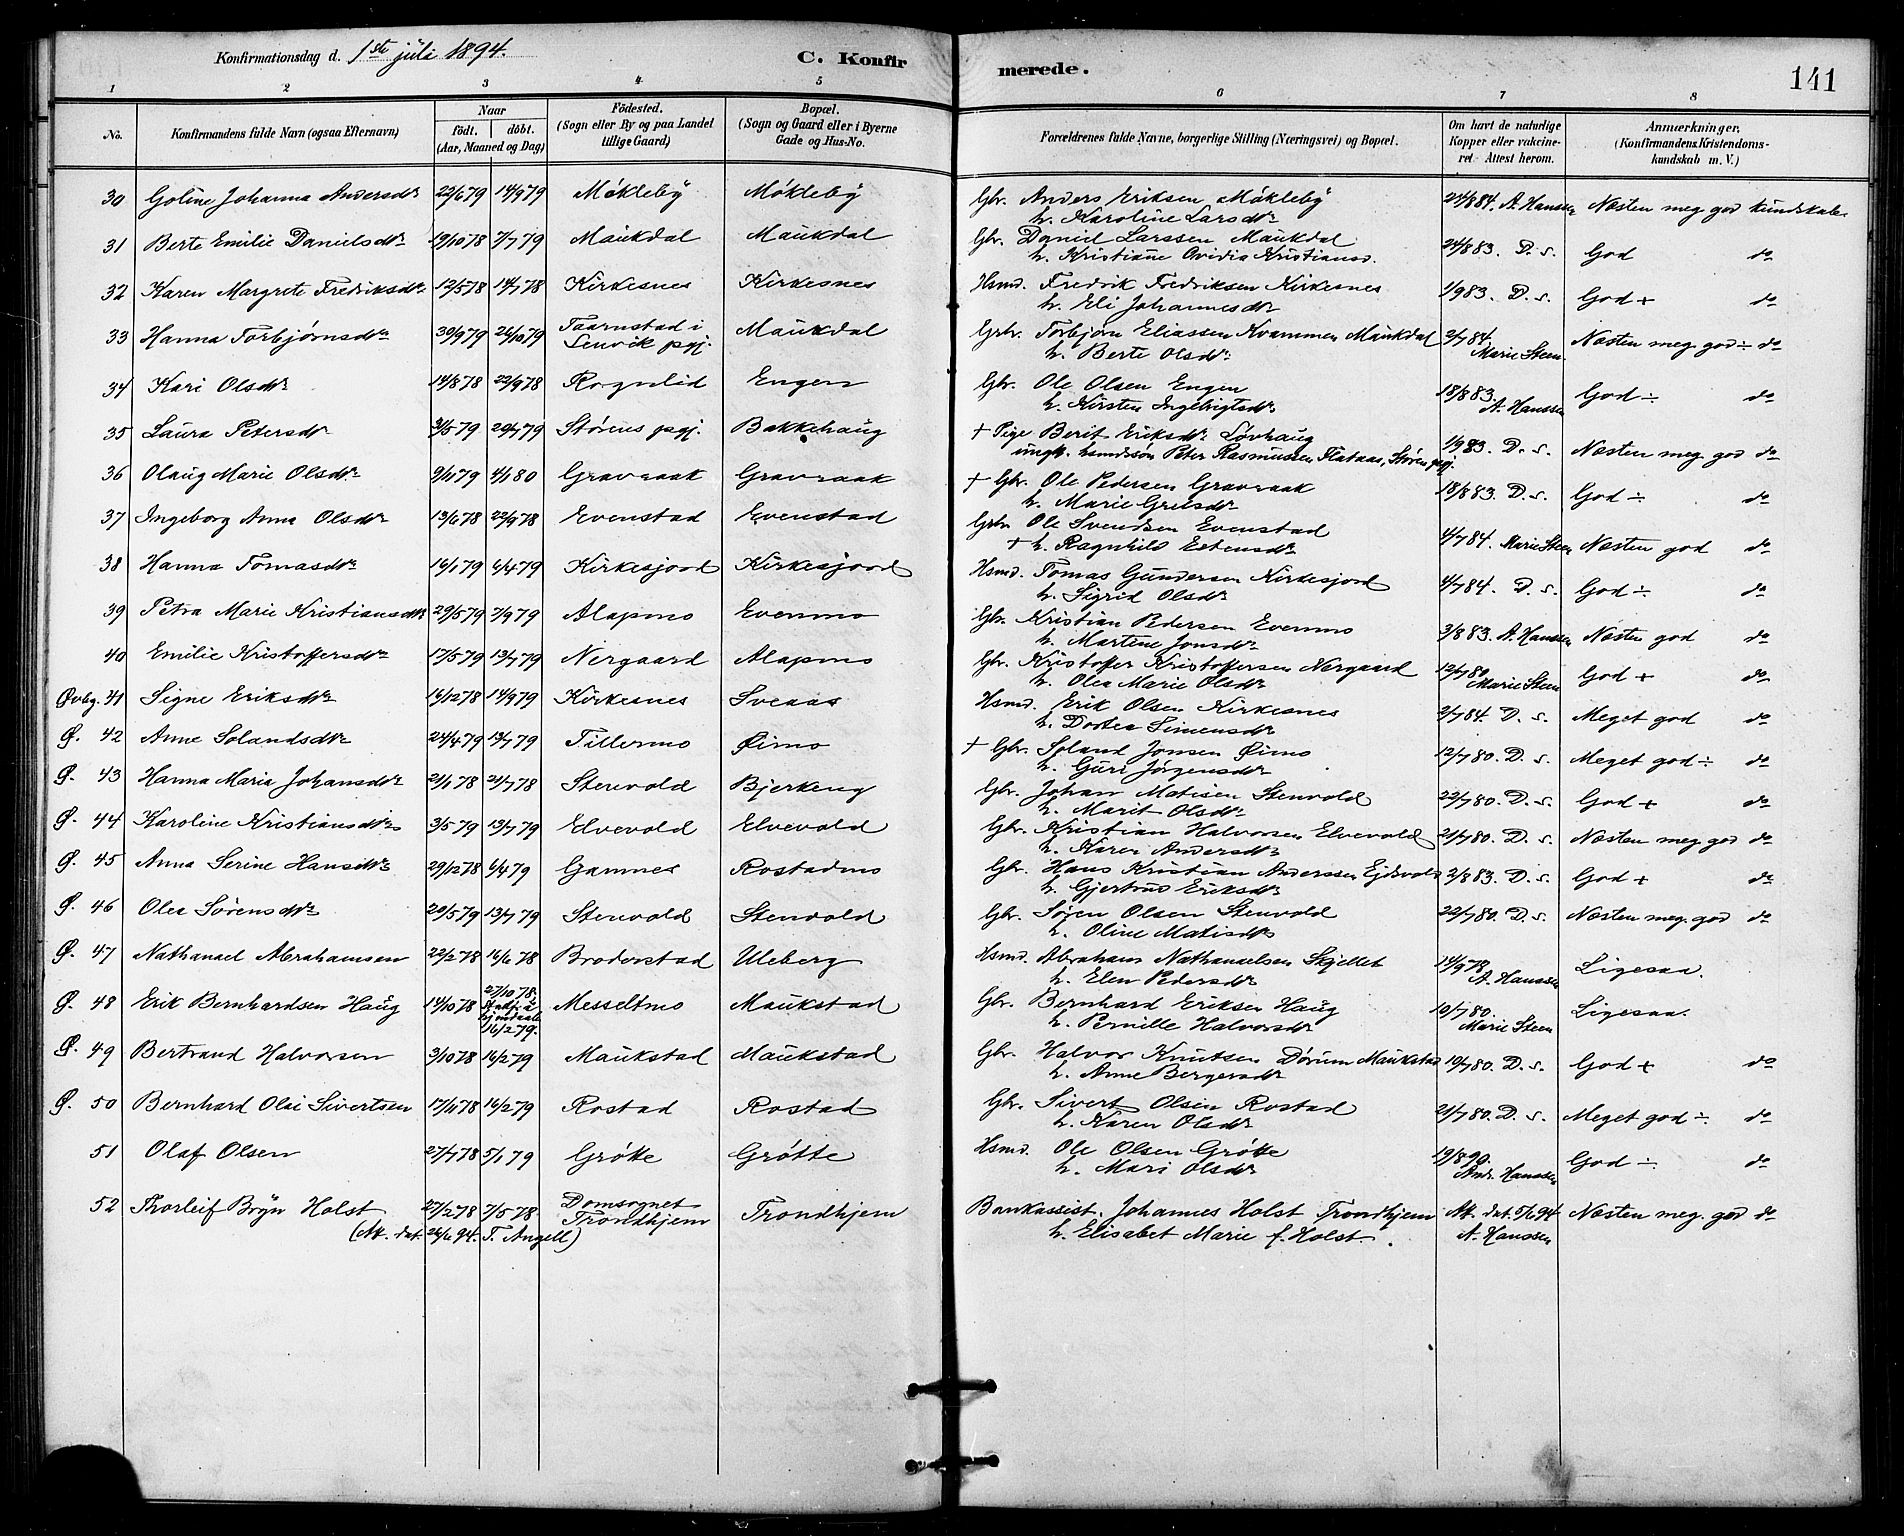 Konfirmationsdag d. 1ste juli 1894.
C. Konfirmerede.
141
1 2 3 4 5 6 7 8
No.
Konfirmandens fulde Navn (ogsaa Efternavn)
Naar
födt. döbt.
(Aar, Maaned og Dag)
Födested.
(Sogn eller By og paa Landet tillige Gaard.)
Bopæl.
(Sogn og Gaard eller i Byerne Gade og Hus-No.
Forældrenes fulde Navne, borgerlige Stilling (Næringsvei) og Bopæl.
Om havt de naturlige Kopper eller vakcineret. Attest herom.
Anmærkninger,
(Konfirmandens Kristendomskundskab m. V.)
30 Goline Johanna Andersdr 22/6 79 14/9 79 Möklebÿ Möklebÿ Gbr. Anders Eriksen Möklebÿ 24/8 84. A. Hanssen Næsten meg god kundskab
h. Karoline Larsdr
31 Berte Emilie Danielsdr 19/10 78 7/7 79 Maukdal Maukdal Gbr. Daniel Larssen Maukdal 24/8 83. D. s. God do
h. Kristiane Ovidia Kristiansd.
32 Karen Margrete Fredriksdr 12/5 78 14/7 78 Kirkesnes Kirkesnes Hsmd. Fredrik Fredriksen Kirkesnes 1/9 83. D. s. God + do
h. Eli Johannesdr
33 Hanna Torbjörnsdr 30/9 79 26/10 79 Taarnstad i Lenvik pgj. Maukdal Gbr. Torbjörn Eliassen Kvammen Maukdal 2/7 84. Marie Steen Næsten meg. god ÷ do
h. Berte Olsdr
34 Kari Olsdr 14/8 78 22/9 78 Rognlid Engen Gbr. Ole Olsen Engen 18/8 83. A. Hanssen God ÷ do
h. Kirsten Ingebrigtsdr
35 Laura Petersdr 3/5 79 20/7 79 Störens pgj. Bakkehaug + Pige Berit Eriksdr Lövhaug 1/9 83. D. s. Næsten meg. god do
ungk. husmdsön Peter Rasmussen Flataas, Stören pgj.
36 Olaug Marie Olsdr 9/11 79 4/1 80 Gravraak Gravraak + Gbr. Ole Pedersen Gravraak 18/8 83. D. s. God ÷ do
h. Marie Grusdr
37 Ingeborg Anna Olsdr 13/6 78 22/9 78 Evenstad Evenstad Gbr. Ole Svendsen Evenstad 4/7 84. Marie Steen Næsten god do
+ h. Ragnhild Estensdr
38 Hanna Tomasdr 16/1 79 6/4 79 Kirkesjord Kirkesjord Hsmd. Tomas Gundersen Kirkesjord 4/7 84. D. s. God ÷ do
h. Sigrid Olsdr
39 Petra Marie Kristiansdr 29/5 79 7/9 79 Alapmo Evenmo Gbr. Kristian Pedersen Evenmo 3/8 83. A. Hanssen Næsten god do
h. Martine Jonsdr
40 Emilie Kristoffersdr 17/5 79 13/7 79 Nergaard Alapmo Gbr. Kristoffer Kristoffersen Nergaard 12/7 80. Marie Steen God + do
h. Olea Marie Olsdr
Øvbg. 41 Signe Eriksdr 16/12 78 14/9 79 Kirkesnes Sveaas Hsmd. Erik Olsen Kirkesnes 2/7 84. D. s. Meget god do
h. Dortea Simensdr
Ø. 42 Anne Solandsdr 24/4 79 13/7 79 Tillermo Øimo + Gbr. Soland Jonsen Øimo 12/7 80. D. s. Meget god ÷ do
h. Guri Jörgensdr
Ø. 43 Hanna Maria Johansdr 21/1 78 21/7 78 Stenvold Bjerkeng Gbr. Johan Matisen Stenvold 22/7 80. D. s. God + do
h. Marit Olsdr
Ø. 44 Karoline Kristiansdr 3/5 79 13/7 79 Elvevold Elvevold Gbr. Kristian Halvorsen Elvevold 21/7 80. D. s. Næsten meg. god do
h. Karen Andersdr
Ø. 45 Anna Serine Hansdr 29/12 78 6/4 79 Gamnes Rostadmo Gbr. Hans Kristian Anderssen Ejdsvold 2/8 83. D. s. God + do
h. Gjertrud Eriksdr
Ø. 46 Olea Sörensdr 20/5 79 13/7 79 Stenvold Stenvold Gbr. Sören Olsen Stenvold 22/7 80. D. s. Næsten meg. god do
h. Oline Matisdr
Ø. 47 Nathanael Abrahamsen 22/2 78 16/6 78 Broderstad Uleberg Hsmd. Abraham Nathanaelsen Skjellet 14/9 78. A. Hanssen Ligesaa.
h. Elen Pedersdr
Ø. 48 Erik Bernhardsen Haug 14/10 78 27/10 78. 16/2 79. Messeltmo Maukstad Gbr. Bernhard Eriksen Haug 10/7 80. Marie Steen Ligesaa.
h. Pernille Halvorsdr
Ø. 49 Bertrand Halvorsen 3/10 78 16/2 79 Maukstad Maukstad Gbr. Halvor Knutsen Dörum Maukstad 10/7 80. D. s. God + do
h. Anne Bergersdr
Ø. 50 Bernhard Olai Sivertsen 17/11 78 16/2 79 Rostad Rostad Gbr. Sivert Olsen Rostad 21/7 80. D. s. Meget god ÷ do
h. Karen Olsdr
51 Olaf Olsen 27/7 78 5/1 79 Grötte Grötte Hsmd. Ole Olsen Grötte 19/8 90. Andr. Hanssen God ÷ do
h. Mari Olsdr
52 Thorleif Brÿn Holst 27/2 78 7/5 78 Domsognet Trondhjem Trondhjem Bankassist. Johannes Holst Trondhjem At. dat. 5/6 94 A. Hanssen Næsten meg. god do
(At. dat. 26/6 94. T. Angell) h. Elisabet Marie f. Holst.